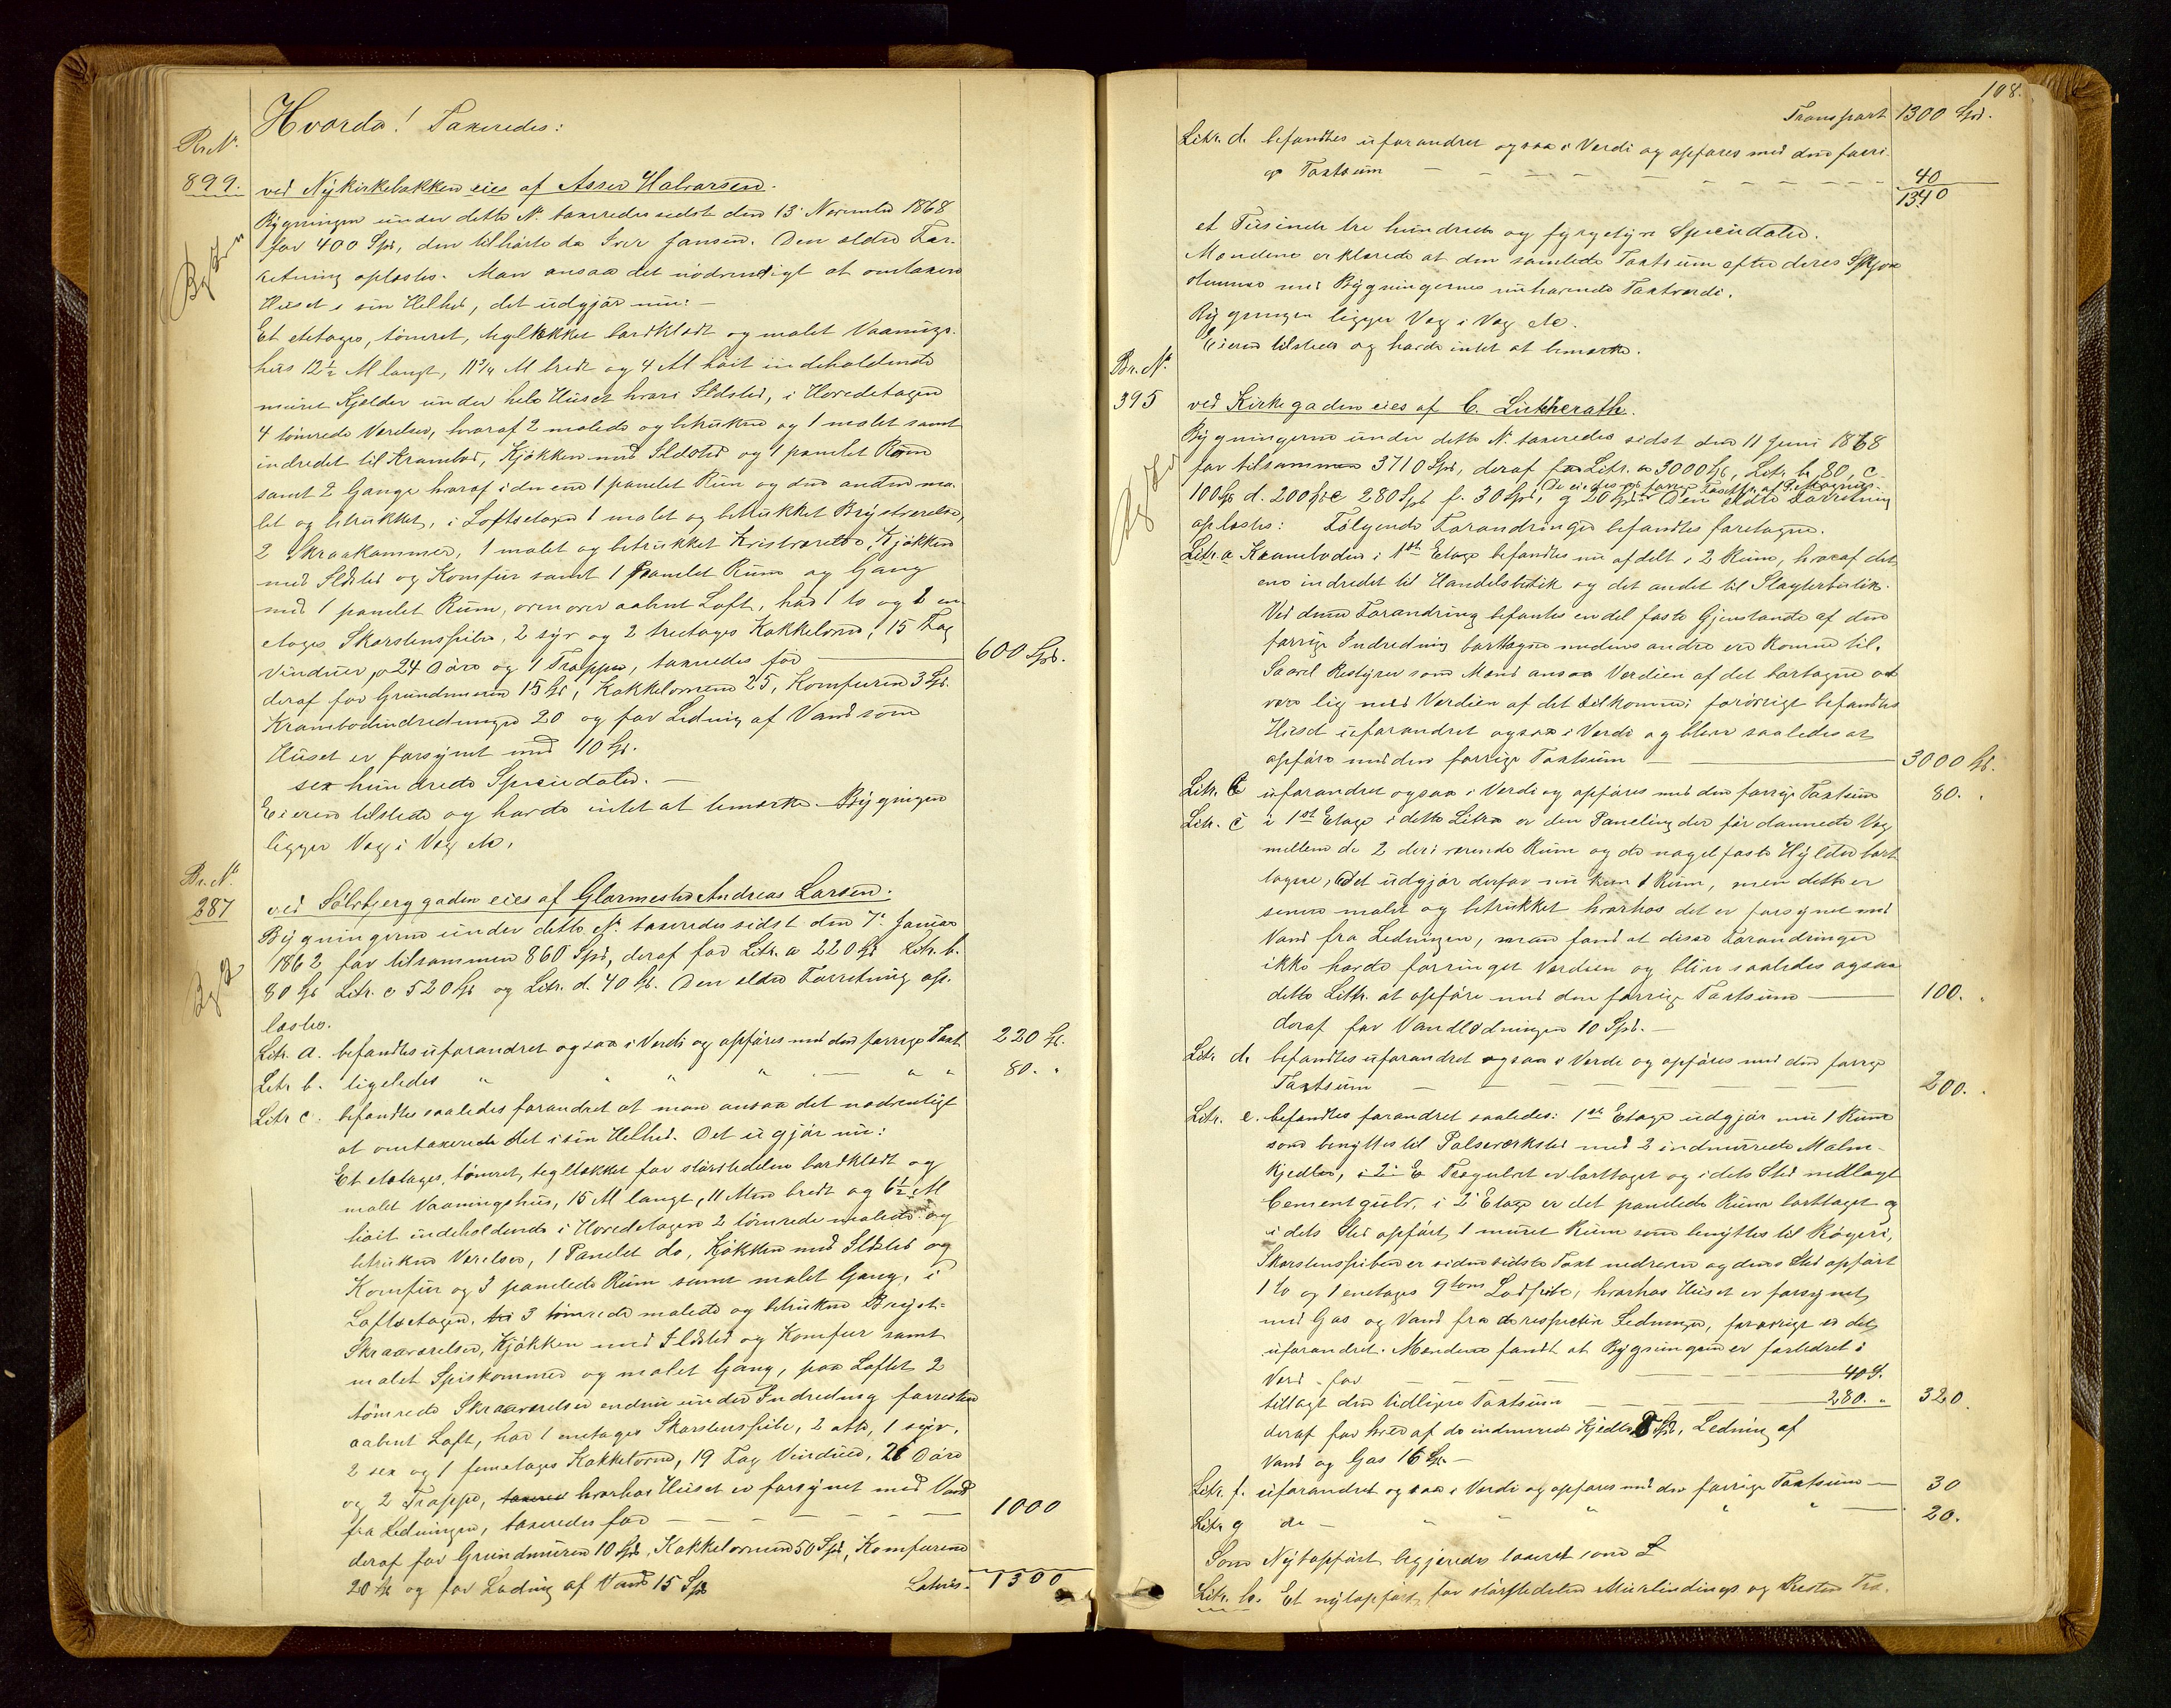 Hvorda! Taxeredes:
Br. N.
899. ved Nykirkebakken eies af Asser Halvorsen.
Bygningen under dette N. taxeredes sidst den 13. November 1868
for 400 Spd, den tilhørte da Iver Jansen. Den ældre For-
retning oplæstes. Man ansaa det nødvendigt at omtaxere
Huset i sin Helhed, det udgjør nu: —
Et etetages, tømret, tegltækket bordklædt og malet Vaanings-
hus 12½ Al langt, 11¾ Al bredt og 4 Al høit indeholdende
muret Kjælder under hele Huset hvori Ildsted, i Hovedetagen
4 tømrede Værelser, hvoraf 2 malede og betrukne og 1 malet samt
indredet til Krambod, Kjøkken med Ildsted og 1 panelet Rum
samt 2 Gange hvoraf i den ene 1 panelet Rum og den anden ma-
let og betrukket, i Loftsetagen 1 malet og betrukket Brystværelse,
2 Skraakammer, 1 malet og betrukket Kvistværelse, Kjøkken
med Ildsted og Komfur samt 1 Panelet Rum og Gang
med 1 panelet Rum, ovenover aabent Loft, har 1 to og 2 en-
etages Skorstenspiber, 2 syv og 2 treetages Kakkelovne, 15 Fag
Vinduer, 24 Døre og 1 Trappe, taxeredes for — 600 Spd.
deraf for Grundmuren 15 Spd, Kakkelovnene 25, Komfuren 3 Spd.
Krambodindredningen 20 og for Ledning af Vand som
Huset er forsynet med 10 Spd.
sex hundrede Speciedaler. —
Eieren tilstede og havde intet at bemærke. Bygningen
ligger Væg i Væg etc.
Br. N.
287 ved Sølvbjerggaden eies af Glarmester Andreas Larsen.
Bygningerne under dette N. taxeredes sidst den 7. Januar
1862 for tilsammen 860 Spd, deraf for Litr. a 220 Spd Litr. b.
80 Spd Litr. c 520 Spd og Litr. d. 40 Spd. Den ældre Forretning op-
læstes.
Litr. a. befandtes uforandret ogsaa i Verdi og opføres med den forrige Taxt 220 Spd.
Litr b. ligeledes " " " " — " " 80. "
Litr c. befandtes saaledes forandret at man ansaa det nødvendigt
at omtaxerede det i sin Helhed. Det udgjør nu:
Et etetages, tømret, tegltækket for størstedelen bordklædt og
malet Vaaningshus, 15 Al langt, 11 Alen bredt og 6½ Al
høit indeholdende i Hovedetagen 2 tømrede malede og
betrukne Værelser, 1 Panelet do, Kjøkken med Ildsted og
Komfur og 3 panelede Rum samt malet Gang, i
Loftsetagen, 3 tømrede malede og betrukne Bryst-
Skraaværelser, Kjøkken med Ildsted og Komfur samt
malet Spiskammer og malet Gang, paa Loftet 2
tømrede Skraaværelser endnu under Indredning forresten
aabent Loft, har 1 enetages Skorstenspibe, 2 otte, 1 syv,
2 sex og 1 femetages Kakkelovne, 19 Fag Vinduer, 26 Døre
og 2 Trapper, taxeres hvorhos Huset er forsynet med Vand
fra Ledningen, taxeredes for — — — — — — 1000
deraf for Grundmuren 10 Spd, Kakkelovnene 50 Spd, Komfurene
20 Spd og for Ledning af Vand 15 Spd Latus. 1300
108.
Transport 1300 Spd.
Litr. d. befandtes uforandret ogsaa i Verdi og opføres med den forri-
ge Taxtsum — — — — — — — — — 40
1340
et Tusinde tre hundrede og fyrgetyve Speciedaler.
Mændene erklærede at den samlede Taxtsum efter deres Skjøn
stemmer med Bygningernes nuhavende Taxtværdi.
Bygningen ligger Væg i Væg etc.
Eieren tilstede og havde intet at bemærke.
Br. N.
395 ved Kirkegaden eies af C. Lütcherath.
Bygningerne under dette N. taxeredes sidst den 11 Juni 1868
for tilsammen 3710 Spd, deraf for Litr. a 3000 Spd, Litr. b 80, c.
De eiedes ved forrige
100 Spd d. 200 Spd e 280 Spd f. 30 Spd, g 20 Spd. Den ældre Forretning
oplæstes: Følgende Forandringer befandtes foretagne.
Litr. a Kramboden i 1ste Etage befandtes nu afdelt i 2 Rum, hvoraf det
ene indredet til Handelsbutik og det andet til Slagterbutik.
Ved denne Forandring befantes endel faste Gjenstande af den
forrige Indredning borttagne medens andre ere komne til.
Saavel Bestyrer som Mænd ansaa Verdien af det borttagne at
være lig med Verdien af det tilkomne; forøvrigt befandtes
Huset uforandret ogsaa i Verdi og bliver saaledes at
opføre med den forrige Taxtsum — 3000 Spd.
Litr. b uforandret ogsaa i Verdi og opføres med den forrige Taxtsum 80. "
Litr. c i 1ste Etage i dette Litra er den Paneling der før dannede Væg
mellem de 2 deri værende Rum og de nagelfaste Hylder bort
tagne, Det udgjør derfor nu kun 1 Rum, men dette er
senere malet og betrukket hvorhos det er forsynet med
Vand fra Ledningen, man fand at disse Forandringer
ikke havde forringet Verdien og bliver saaledes ogsaa
dette Littr. at opføre med den forrige Taxtsum — 100. "
deraf for Vandledningen 10 Spd. —
Litr d. befandtes uforandret ogsaa i Verdi og opføres med den forrige
Taxtsum — — — — — — 200. "
Litr. e. befandtes forandret saaledes: 1ste Etage udgjør nu 1 Rum
som benyttes til Pølseværksted med 2 indmurede Malm-
Kjedler, Trægulvet er borttaget og i dets Sted nedlagt
Cementgulv, i 2. Etage er det panelede Rum borttaget og
i dets Sted opført 1 muret Rum som benyttes til Røgeri,
Skorstenspiben er siden sidste Taxt nedreven og dens Sted opført
1 to og 1 enetages 9 toms Lodpibe, hvorhos Huset er forsynet
med Gas og Vand fra de respective Ledninger, forøvrigt er det
uforandret. Mændene fandt at Bygningen er forbedret i
Verd. for — — — — 40 S.
tillagt den tidligere Taxtsum — — — 280. " 320.
deraf for hver af de indmurede Kjedler 8 Spd, Ledning af
Vand og Gas 16 Spd. —
Litr. f. uforandret ogsaa i Verdi og opføres med den forrige Taxtsum — 30
Litr g do — " " " " — 20.
Som Nytopført begjeredes taxeret som L
Litr. h. Et nytopført, for størstedelen Murbindings og Resten Træ-